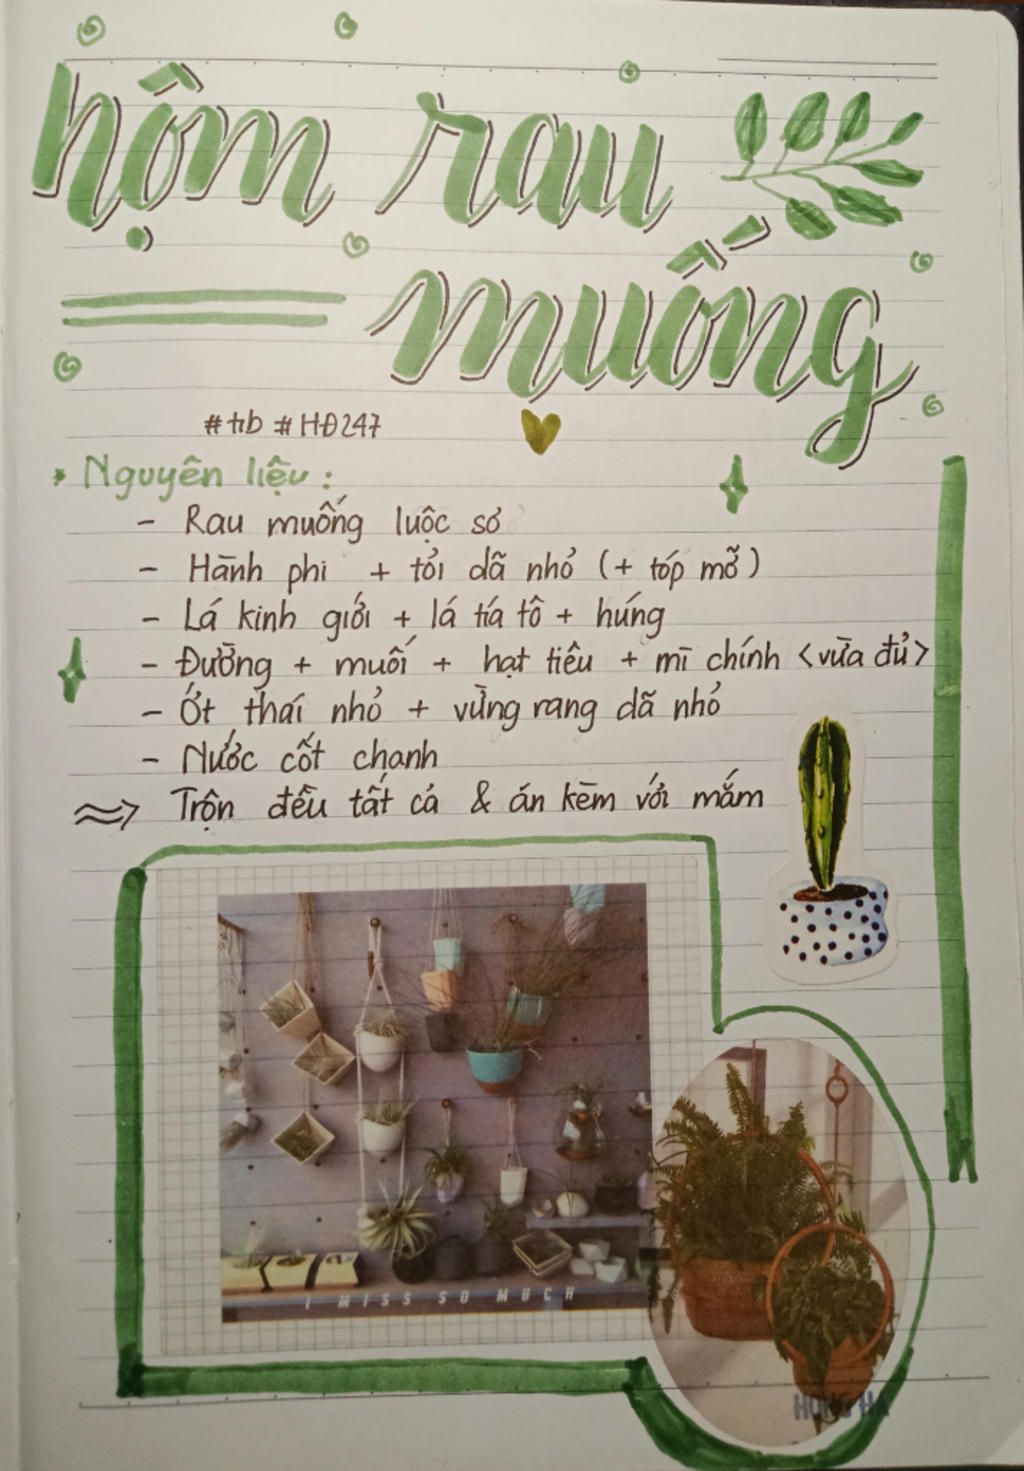 nộm rau
muống
#tib #HĐ247
* Nguyên liệu :
- Rau muống luộc sơ
- Hành phi + tỏi dã nhỏ (+ tóp mỡ)
- Lá kinh giới + lá tía tô + húng
- Đường + muối + hạt tiêu + mì chính <vừa đủ>
- Ớt thái nhỏ + vừng rang dã nhỏ
- Nước cốt chanh
Trộn đều tất cả & ăn kèm với mắm
I MISS SO MUCH
HONG HA